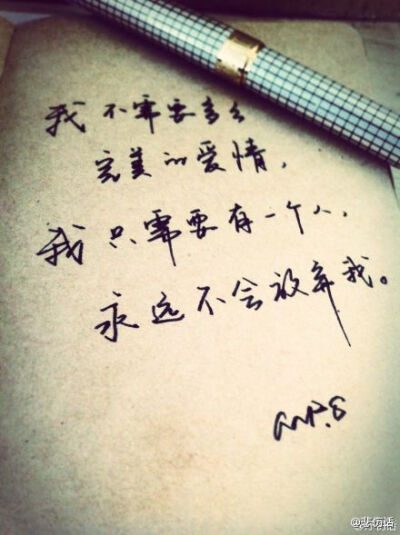 我不需要多么
完美的爱情,
我只需要有一个人,
永远不会放弃我。
@悲伤话